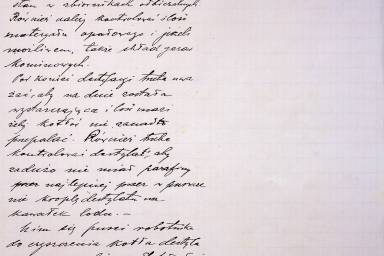 stan w zbiornikach odbieralnych
Również należy kontrolować ilość
materjału opałowego i jeżeli
możliwem, także skład gazów
kominowych.
Pod koniec destylacji trzeba uwa
żać, aby na dnie została
wystarczająca ilość mazi
żeby kotłów nie zanadto
przepalać. Również trzeba
kontrolować destylat, aby
zadużo nie miał parafiny
przez najlepiej przez w
nie kroplę destylatu na
kawałek lodu. —
Zanim się puści robotnika
do czyszczenia kotła destyla